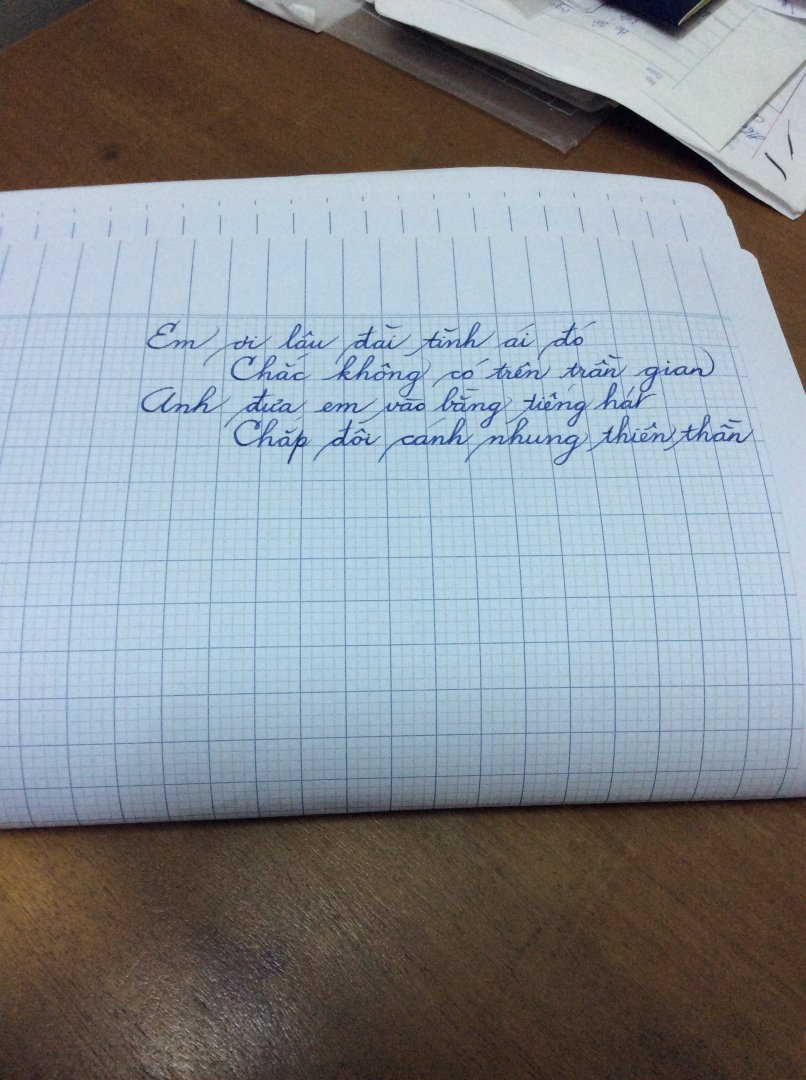 Em ơi lâu đài tình ái đó
Chắc không có trên trần gian
Anh đưa em vào bằng tiếng hát
Chắp đôi cánh nhung thiên thần